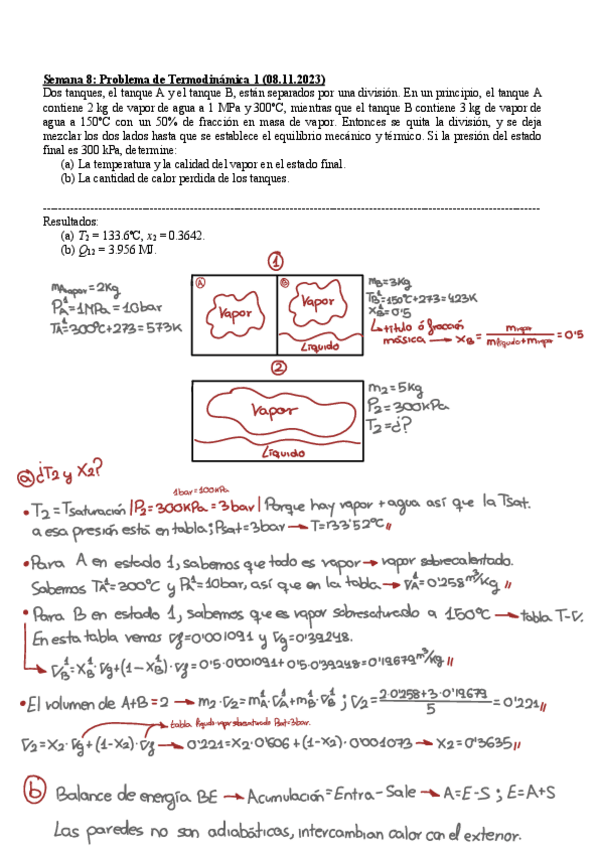 Semana 8: Problema de Termodinámica 1 (08.11.2023)
Dos tanques, el tanque A y el tanque B, están separados por una división. En un principio, el tanque A
contiene 2 kg de vapor de agua a 1 MPa y 300°C, mientras que el tanque B contiene 3 kg de vapor de
agua a 150°C con un 50% de fracción en masa de vapor. Entonces se quita la división, y se deja
mezclar los dos lados hasta que se establece el equilibrio mecánico y térmico. Si la presión del estado
final es 300 kPa, determine:
(a) La temperatura y la calidad del vapor en el estado final.
(b) La cantidad de calor perdida de los tanques.
Resultados:
(a) T2 = 133.6°C, x2 = 0.3642.
(b) Q12 = 3.956 MJ.
①
mA vapor = 2Kg
PA¹ = 1MPa = 10bar
TA¹ = 300°C + 273 = 573K
Ⓐ Vapor
Ⓑ Vapor
Líquido
mB = 3Kg
TB¹ = 150°C + 273 = 423K
XB¹ = 0'5
↳ titulo ó fracción
másica → XB = mvapor / mlíquido + mvapor = 0'5
②
Vapor
Líquido
m2 = 5Kg
P2 = 300kPa
T2 = ¿?
ⓐ ¿T2 y X2?
1bar = 100kPa
• T2 = Tsaturación | P2 = 300kPa = 3bar | Porque hay vapor + agua así que la Tsat.
a esa presión está en tabla; Psat = 3bar → T = 133'52°C //
• Para A en estado 1, sabemos que todo es vapor → vapor sobrecalentado.
Sabemos TA¹ = 300°C y PA¹ = 10bar, así que en la tabla → VA¹ = 0'258 m³/Kg //
• Para B en estado 1, sabemos que es vapor sobresaturado a 150°C → tabla T-V.
En esta tabla vemos Vf = 0'001091 y Vg = 0'39248.
↳ VB¹ = XB¹ · Vg + (1 - XB¹) · Vf = 0'5 · 0'001091 + 0'5 · 0'39248 = 0'19679 m³/kg //
• El volumen de A+B = 2 → m2 · V2 = mA¹ · VA¹ + mB¹ · VB¹ ; V2 = 2·0'258 + 3·0'19679 / 5 = 0'221 //
V2 = X2 · Vg + (1 - X2) · Vf → 0'221 = X2 · 0'606 + (1 - X2) · 0'001073 → X2 = 0'3635 //
ⓑ Balance de energía BE → Acumulación = Entra - Sale → A = E - S ; E = A + S
Las paredes no son adiabáticas, intercambian calor con el exterior.